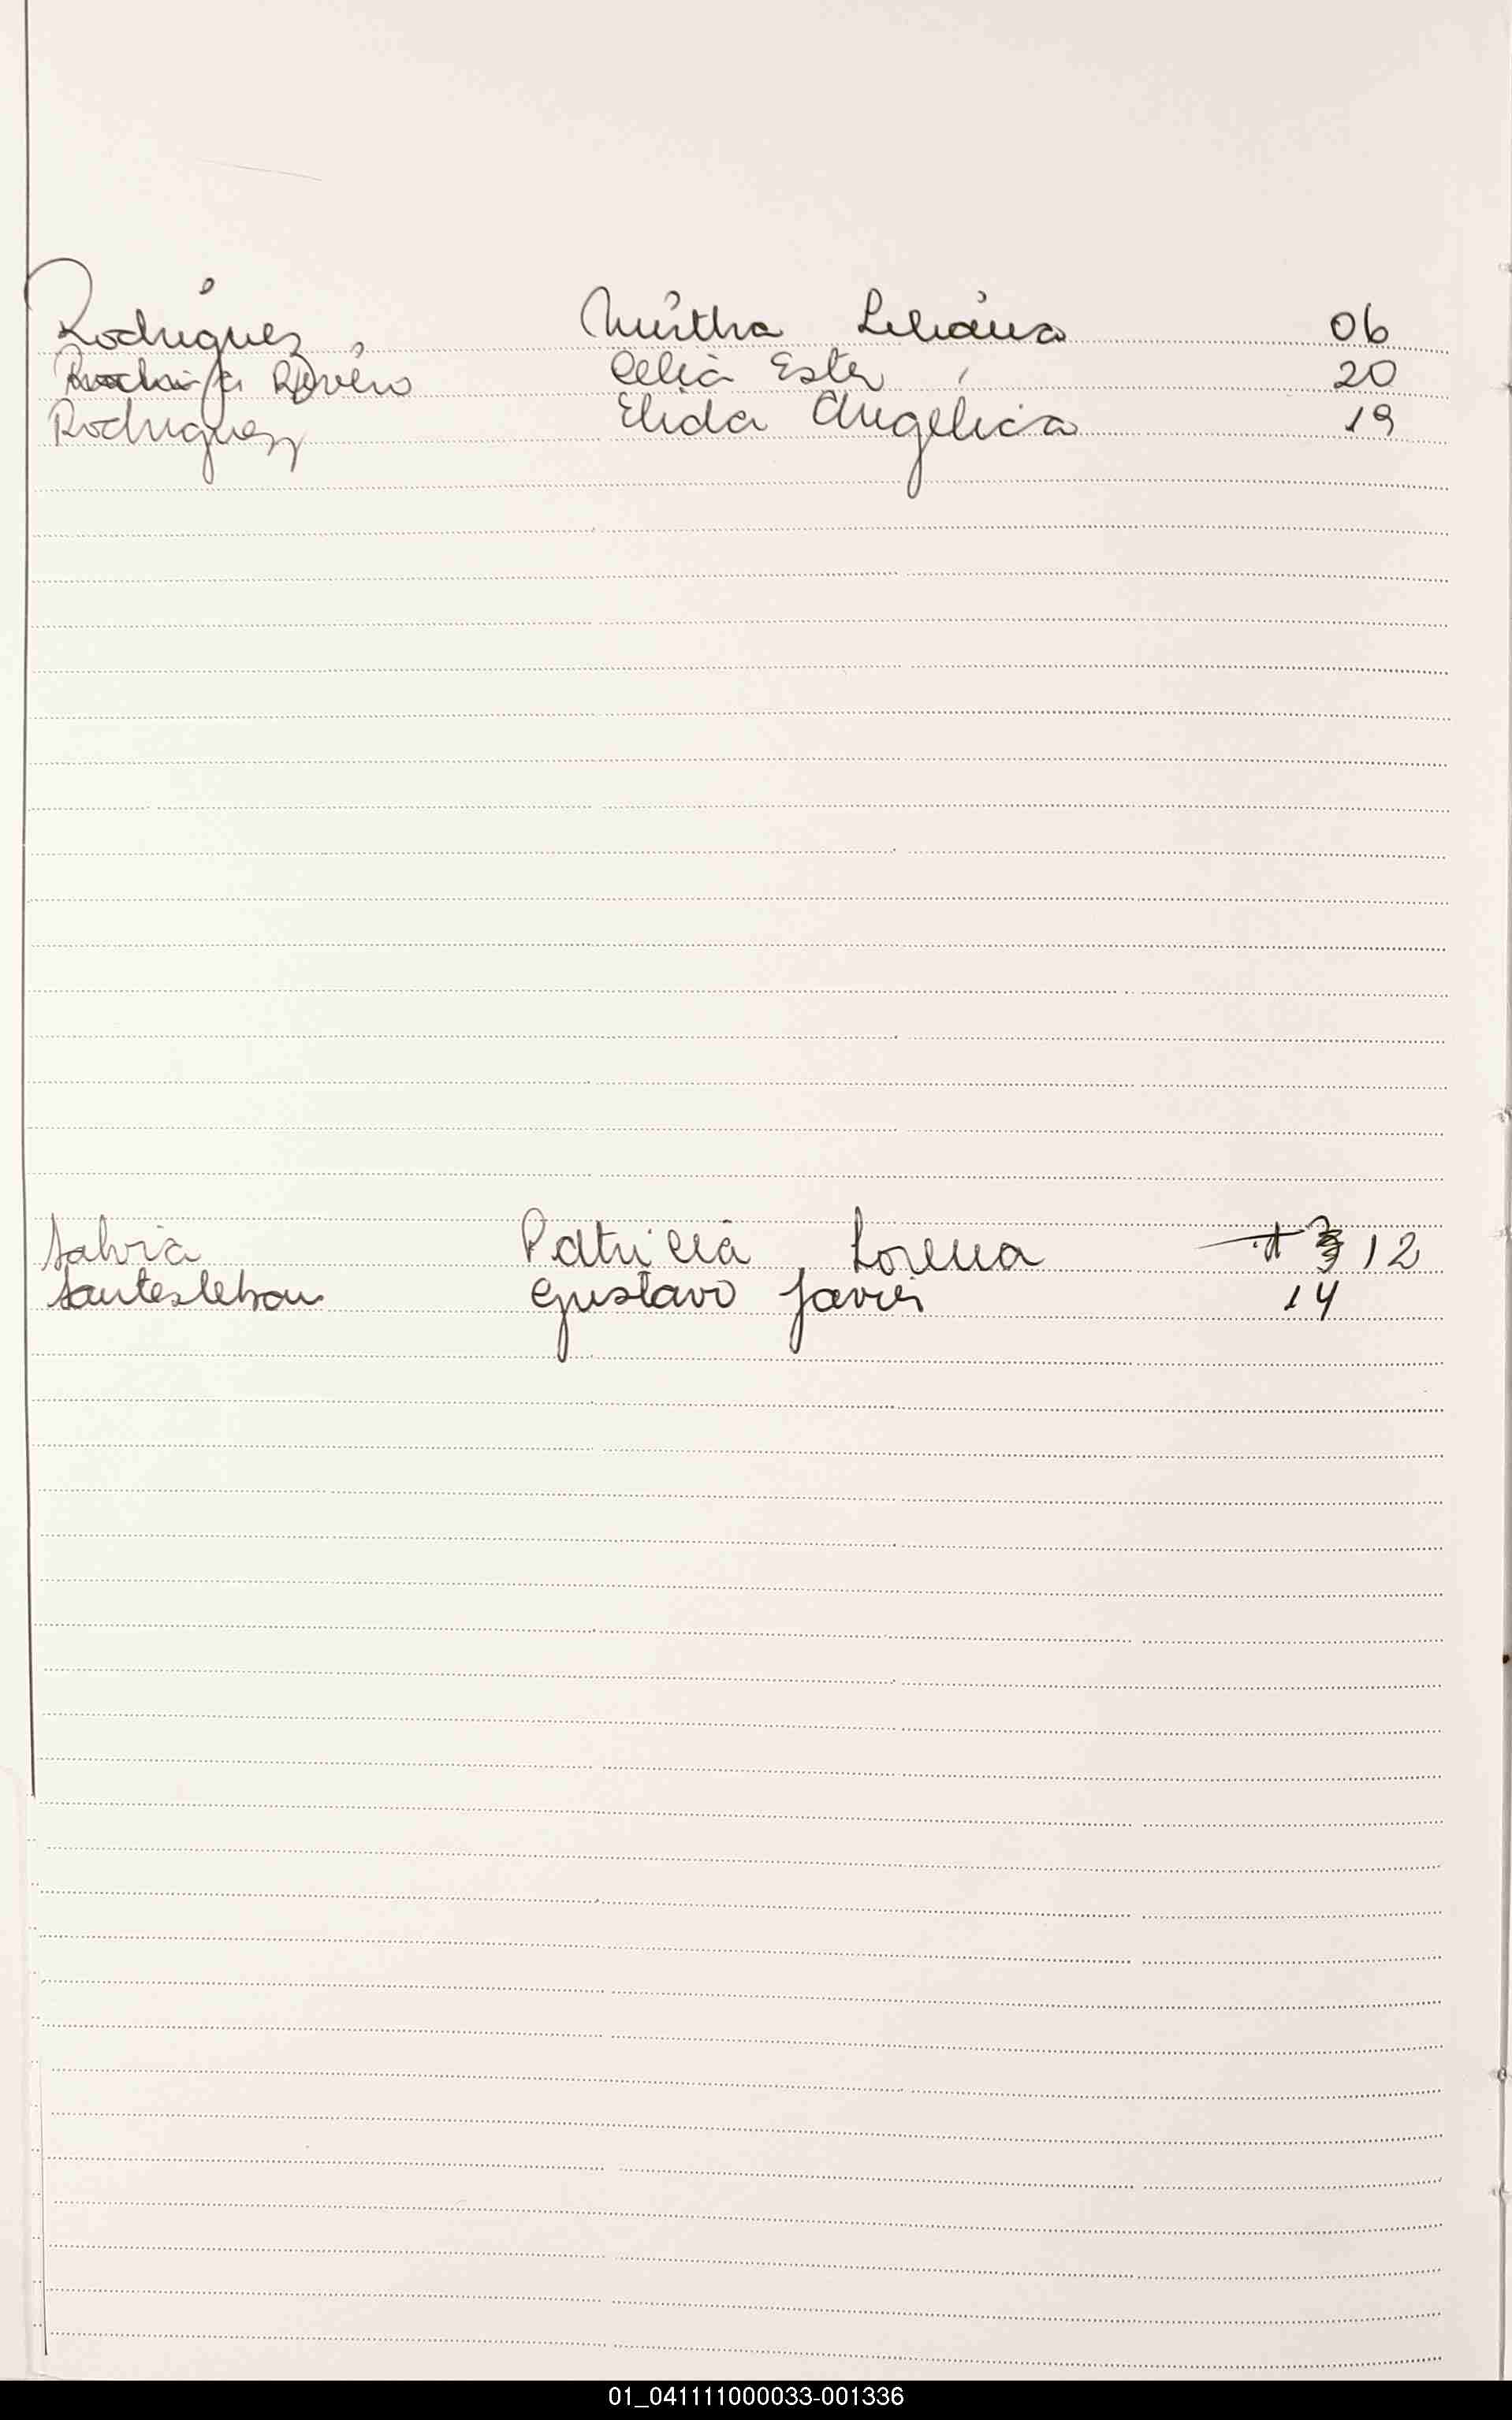 Rodriguez Mirtha Liliana 06
Rivero Celia Ester 20
Rodriguez Elida Angelica 19
Salvia Patricia Lorena 12
Santesteban Gustavo Javier 14
01_041111000033-001336